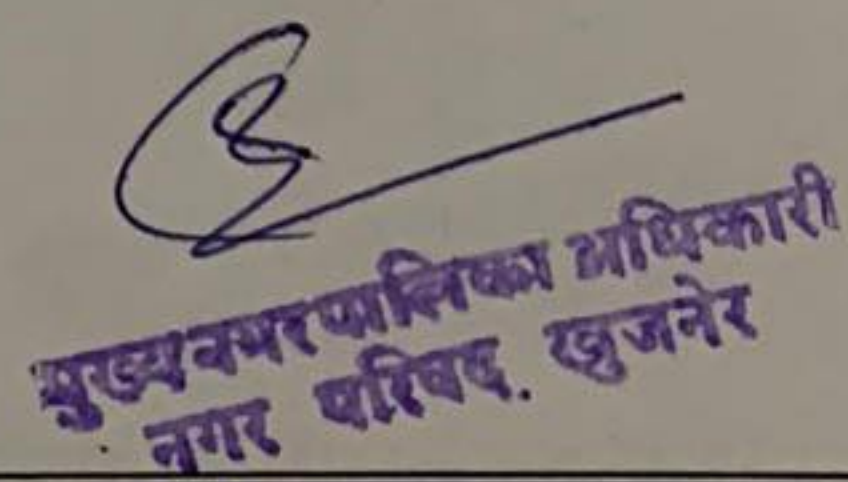 मुख्य नगरपालिका अधिकारी
नगर परिषद. खुजनेर